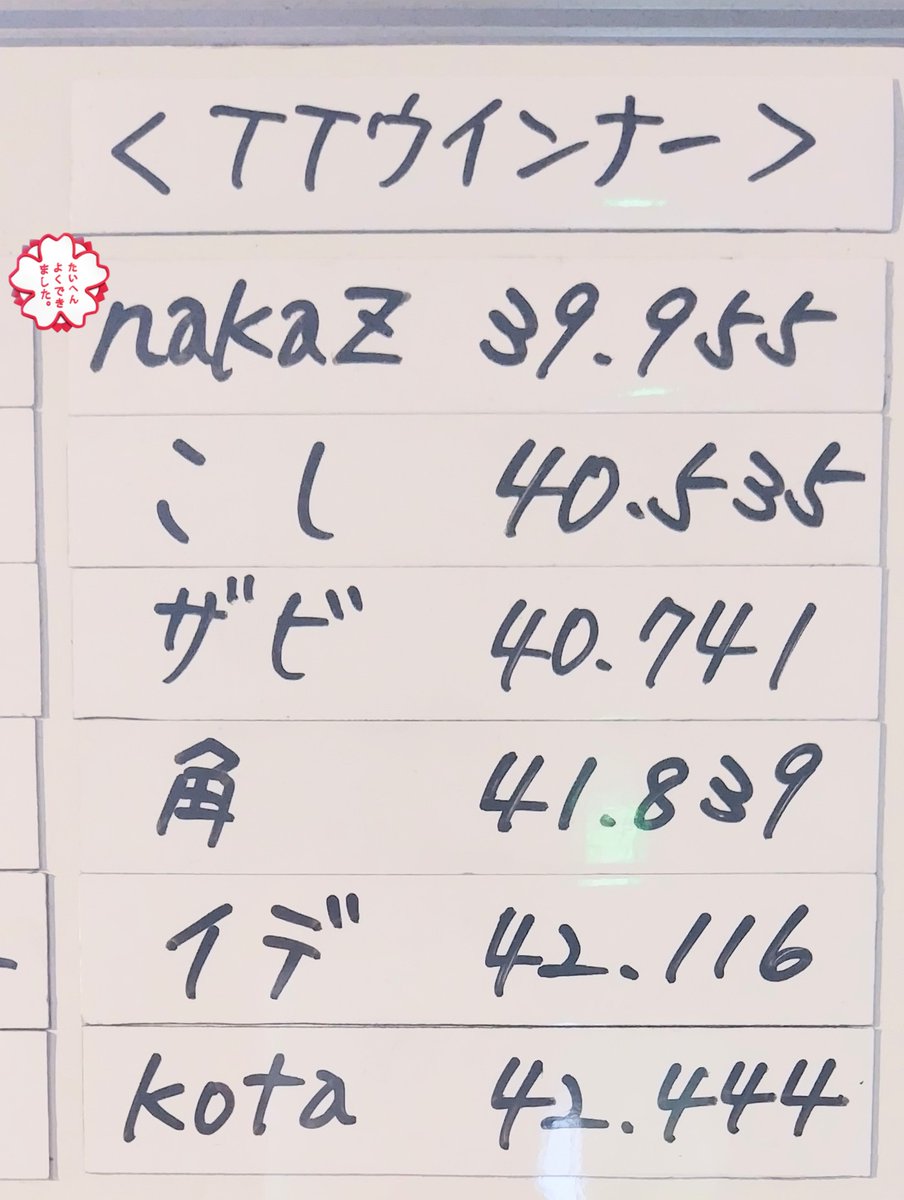 ＜TTウインナー＞
たいへん
よくでき
ました。
nakaz 39.955
こし 40.535
ザビ 40.741
角 41.839
イデ 42.116
kota 42.444